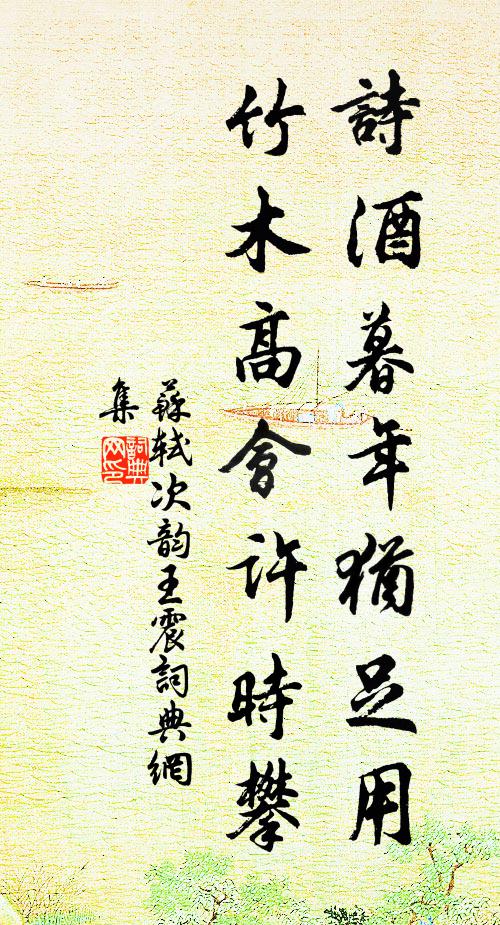 詩酒暮年猶足用
竹木高會許時攀
蘇軾次韵王震詞典網
集
詞典
网印